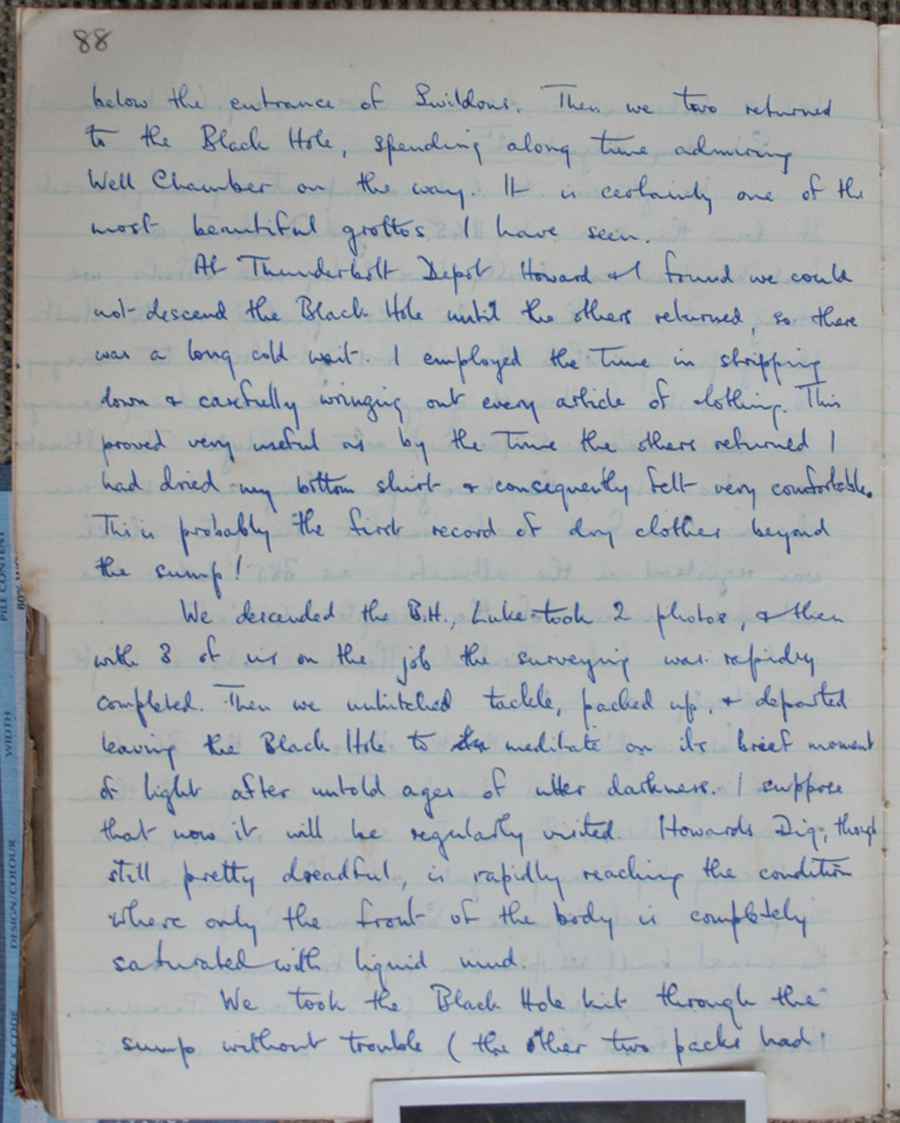 88
below the entrance of Swildons. Then we two returned
to the Black Hole, spending along time admiring
Well Chamber on the way. It is certainly one of the
most beautiful grottos I have seen.
At Thunderbolt Depot Howard & I found we could
not descend the Black Hole until the others returned, so there
was a long cold wait. I employed the Time in stripping
down & carefully wringing out every article of clothing. This
proved very useful as by the Time the others returned I
had dried my bottom shirt & consequently felt very comfortable.
This is probably the first record of dry clothes beyond
the sump!
We descended the B.H., Luke took 2 photos, & then
with 3 of us on the job the surveying was rapidly
completed. Then we unhitched tackle, packed up, & departed
leaving the Black Hole to meditate on its brief moment
of light after untold ages of utter darkness. I suppose
that now it will be regularly visited. Howards Dig, though
still pretty dreadful, is rapidly reaching the condition
where only the front of the body is completely
saturated with liquid mud.
We took the Black Hole kit through the
sump without trouble (the other two packs had
PILE CONTENT
80%
WIDTH
DESIGN/COLOUR
STOCK CODE